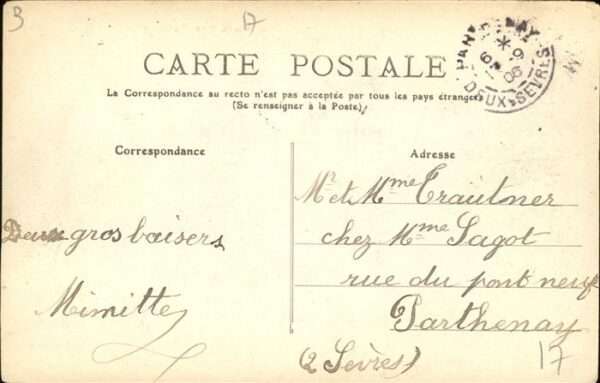 B
17
CARTE POSTALE
La Correspondance au recto n'est pas acceptée par tous les pays étrangers
(Se renseigner à la Poste)
PARTHENAY
DEUX-SÈVRES
Correspondance
Deux gros baisers
Mimitte
Adresse
Mr et Mme Trautner
chez Mme Sagot
rue du pont neuf
Parthenay
(2 Sèvres)
17